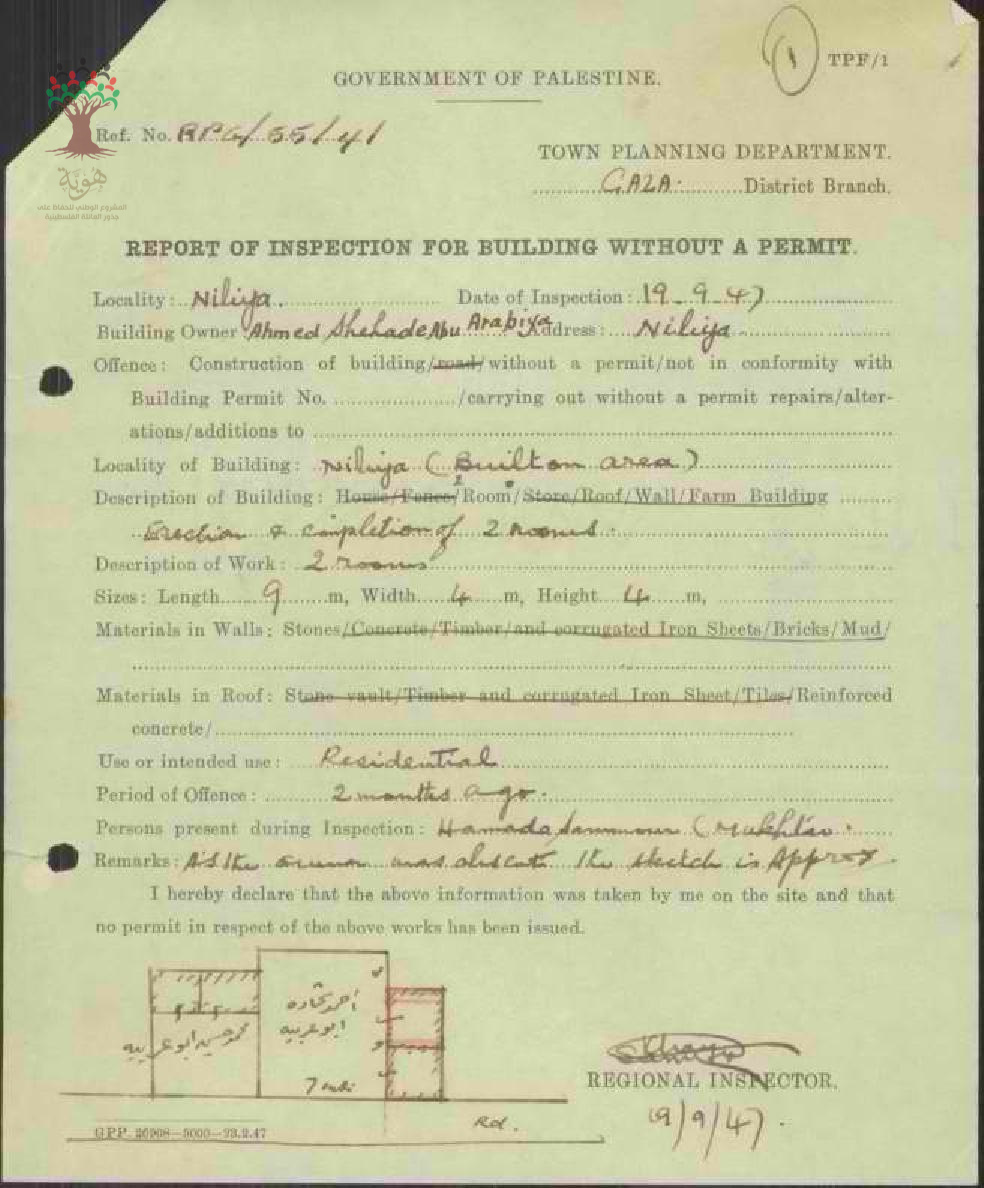 1
TPF/1
GOVERNMENT OF PALESTINE.
Ref. No. RPG/55/41
هوية
المشروع الوطني للحفاظ على
جذور العائلة الفلسطينية
TOWN PLANNING DEPARTMENT.
GAZA. District Branch.
REPORT OF INSPECTION FOR BUILDING WITHOUT A PERMIT.
Locality: Niliya. Date of Inspection: 19-9-47
Building Owner Ahmed Shehade Abu Arabiya Address: Niliya
Offence: Construction of building/road/without a permit/not in conformity with
Building Permit No. /carrying out without a permit repairs/alter-
ations/additions to
Locality of Building: Niliya (Built on area)
Description of Building: House/Fence/2 Room/Store/Roof/Wall/Farm Building
Erection & completion of 2 rooms.
Description of Work: 2 rooms
Sizes: Length 9 m, Width 4 m, Height 4 m,
Materials in Walls: Stones/Concrete/Timber/and corrugated Iron Sheets/Bricks/Mud/
Materials in Roof: Stone vault/Timber and corrugated Iron Sheet/Tiles/Reinforced
concrete/
Use or intended use: Residential
Period of Offence: 2 months ago.
Persons present during Inspection: Hamada (Mukhtar.
Remarks: As the owner was the sketch is Approx.
I hereby declare that the above information was taken by me on the site and that
no permit in respect of the above works has been issued.
احمد شحاده
ابو عربيه
محمد حسين ابو عربيه
Rd.
REGIONAL INSPECTOR.
19/9/47.
GPP. 20908—5000—23.2.47